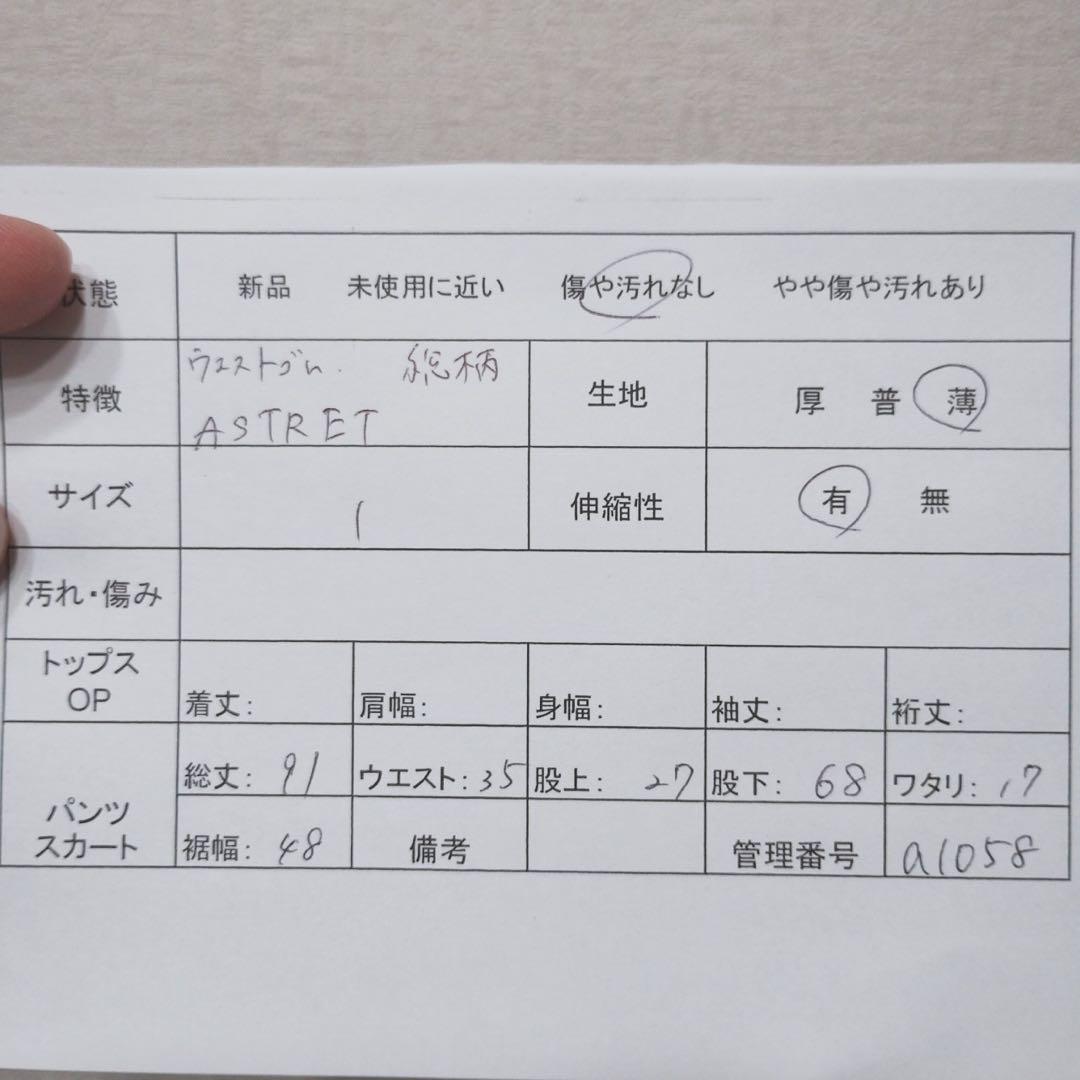 状態 新品 未使用に近い 傷や汚れなし やや傷や汚れあり
特徴 ウエストゴム. 総柄 生地 厚 普 薄
ASTRET
サイズ 1 伸縮性 有 無
汚れ・傷み
トップス
OP 着丈: 肩幅: 身幅: 袖丈: 裄丈:
パンツ
スカート
総丈: 91 ウエスト: 35 股上: 27 股下: 68 ワタリ: 17
裾幅: 48 備考 管理番号 a1058